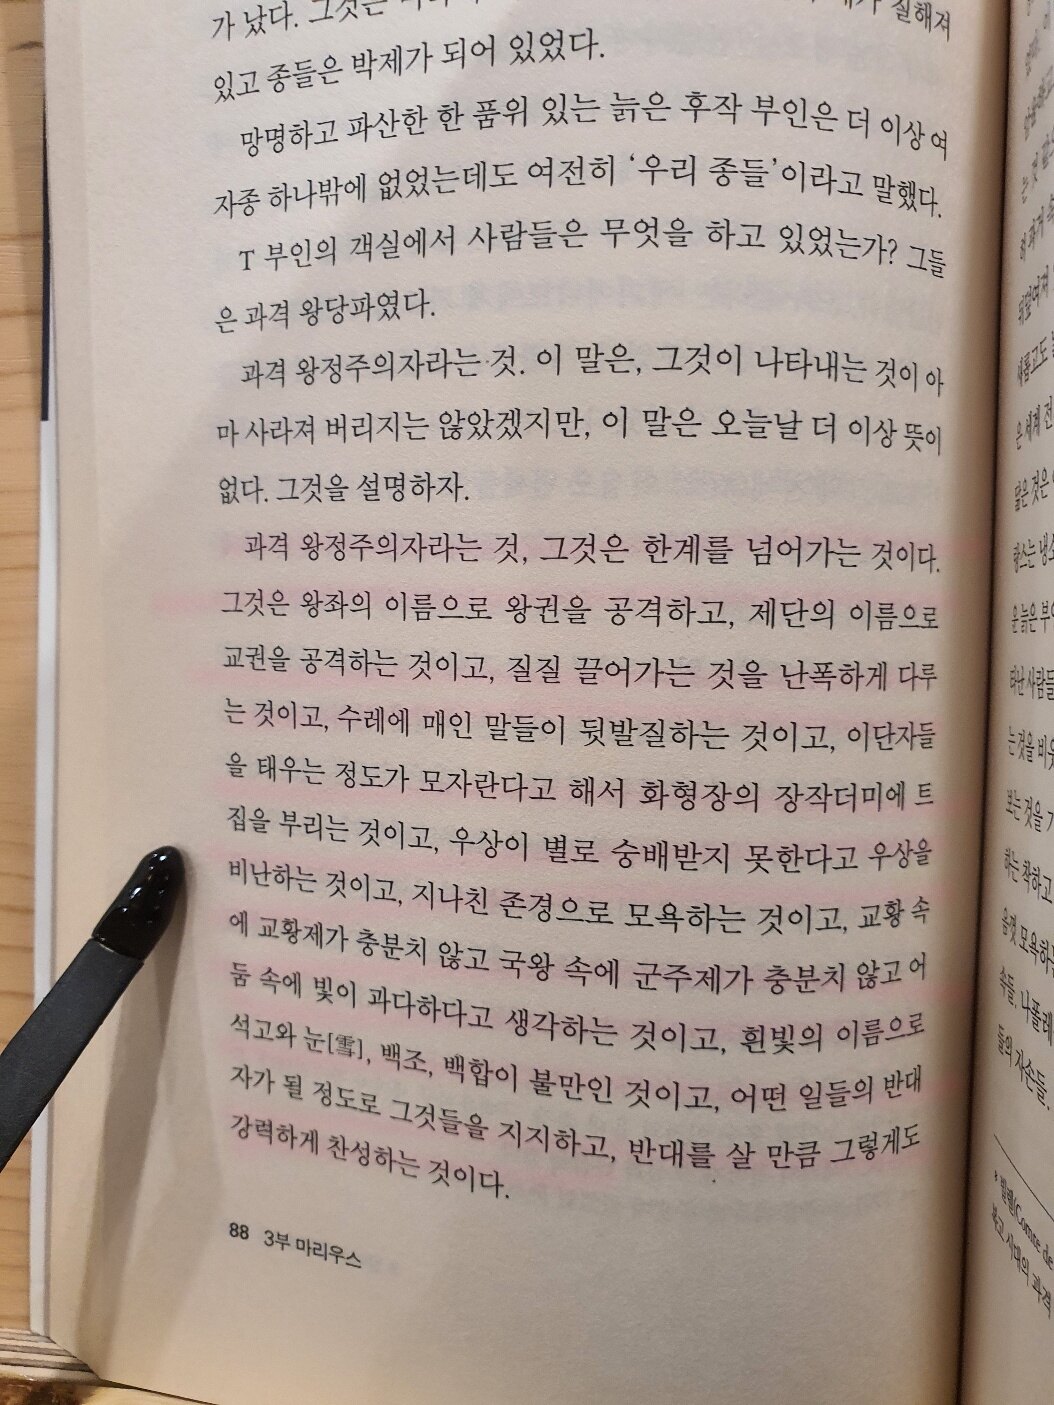 가 났다. 그것은 실해져
있고 종들은 박제가 되어 있었다.
망명하고 파산한 한 품위 있는 늙은 후작 부인은 더 이상 여
자종 하나밖에 없었는데도 여전히 ‘우리 종들’이라고 말했다.
T 부인의 객실에서 사람들은 무엇을 하고 있었는가? 그들
은 과격 왕당파였다.
과격 왕정주의자라는 것. 이 말은, 그것이 나타내는 것이 아
마 사라져 버리지는 않았겠지만, 이 말은 오늘날 더 이상 뜻이
없다. 그것을 설명하자.
과격 왕정주의자라는 것, 그것은 한계를 넘어가는 것이다.
그것은 왕좌의 이름으로 왕권을 공격하고, 제단의 이름으로
교권을 공격하는 것이고, 질질 끌어가는 것을 난폭하게 다루
는 것이고, 수레에 매인 말들이 뒷발질하는 것이고, 이단자들
을 태우는 정도가 모자란다고 해서 화형장의 장작더미에 트
집을 부리는 것이고, 우상이 별로 숭배받지 못한다고 우상을
비난하는 것이고, 지나친 존경으로 모욕하는 것이고, 교황 속
에 교황제가 충분치 않고 국왕 속에 군주제가 충분치 않고 어
둠 속에 빛이 과다하다고 생각하는 것이고, 흰빛의 이름으로
석고와 눈[雪], 백조, 백합이 불만인 것이고, 어떤 일들의 반대
자가 될 정도로 그것들을 지지하고, 반대를 살 만큼 그렇게도
강력하게 찬성하는 것이다.
88 3부 마리우스